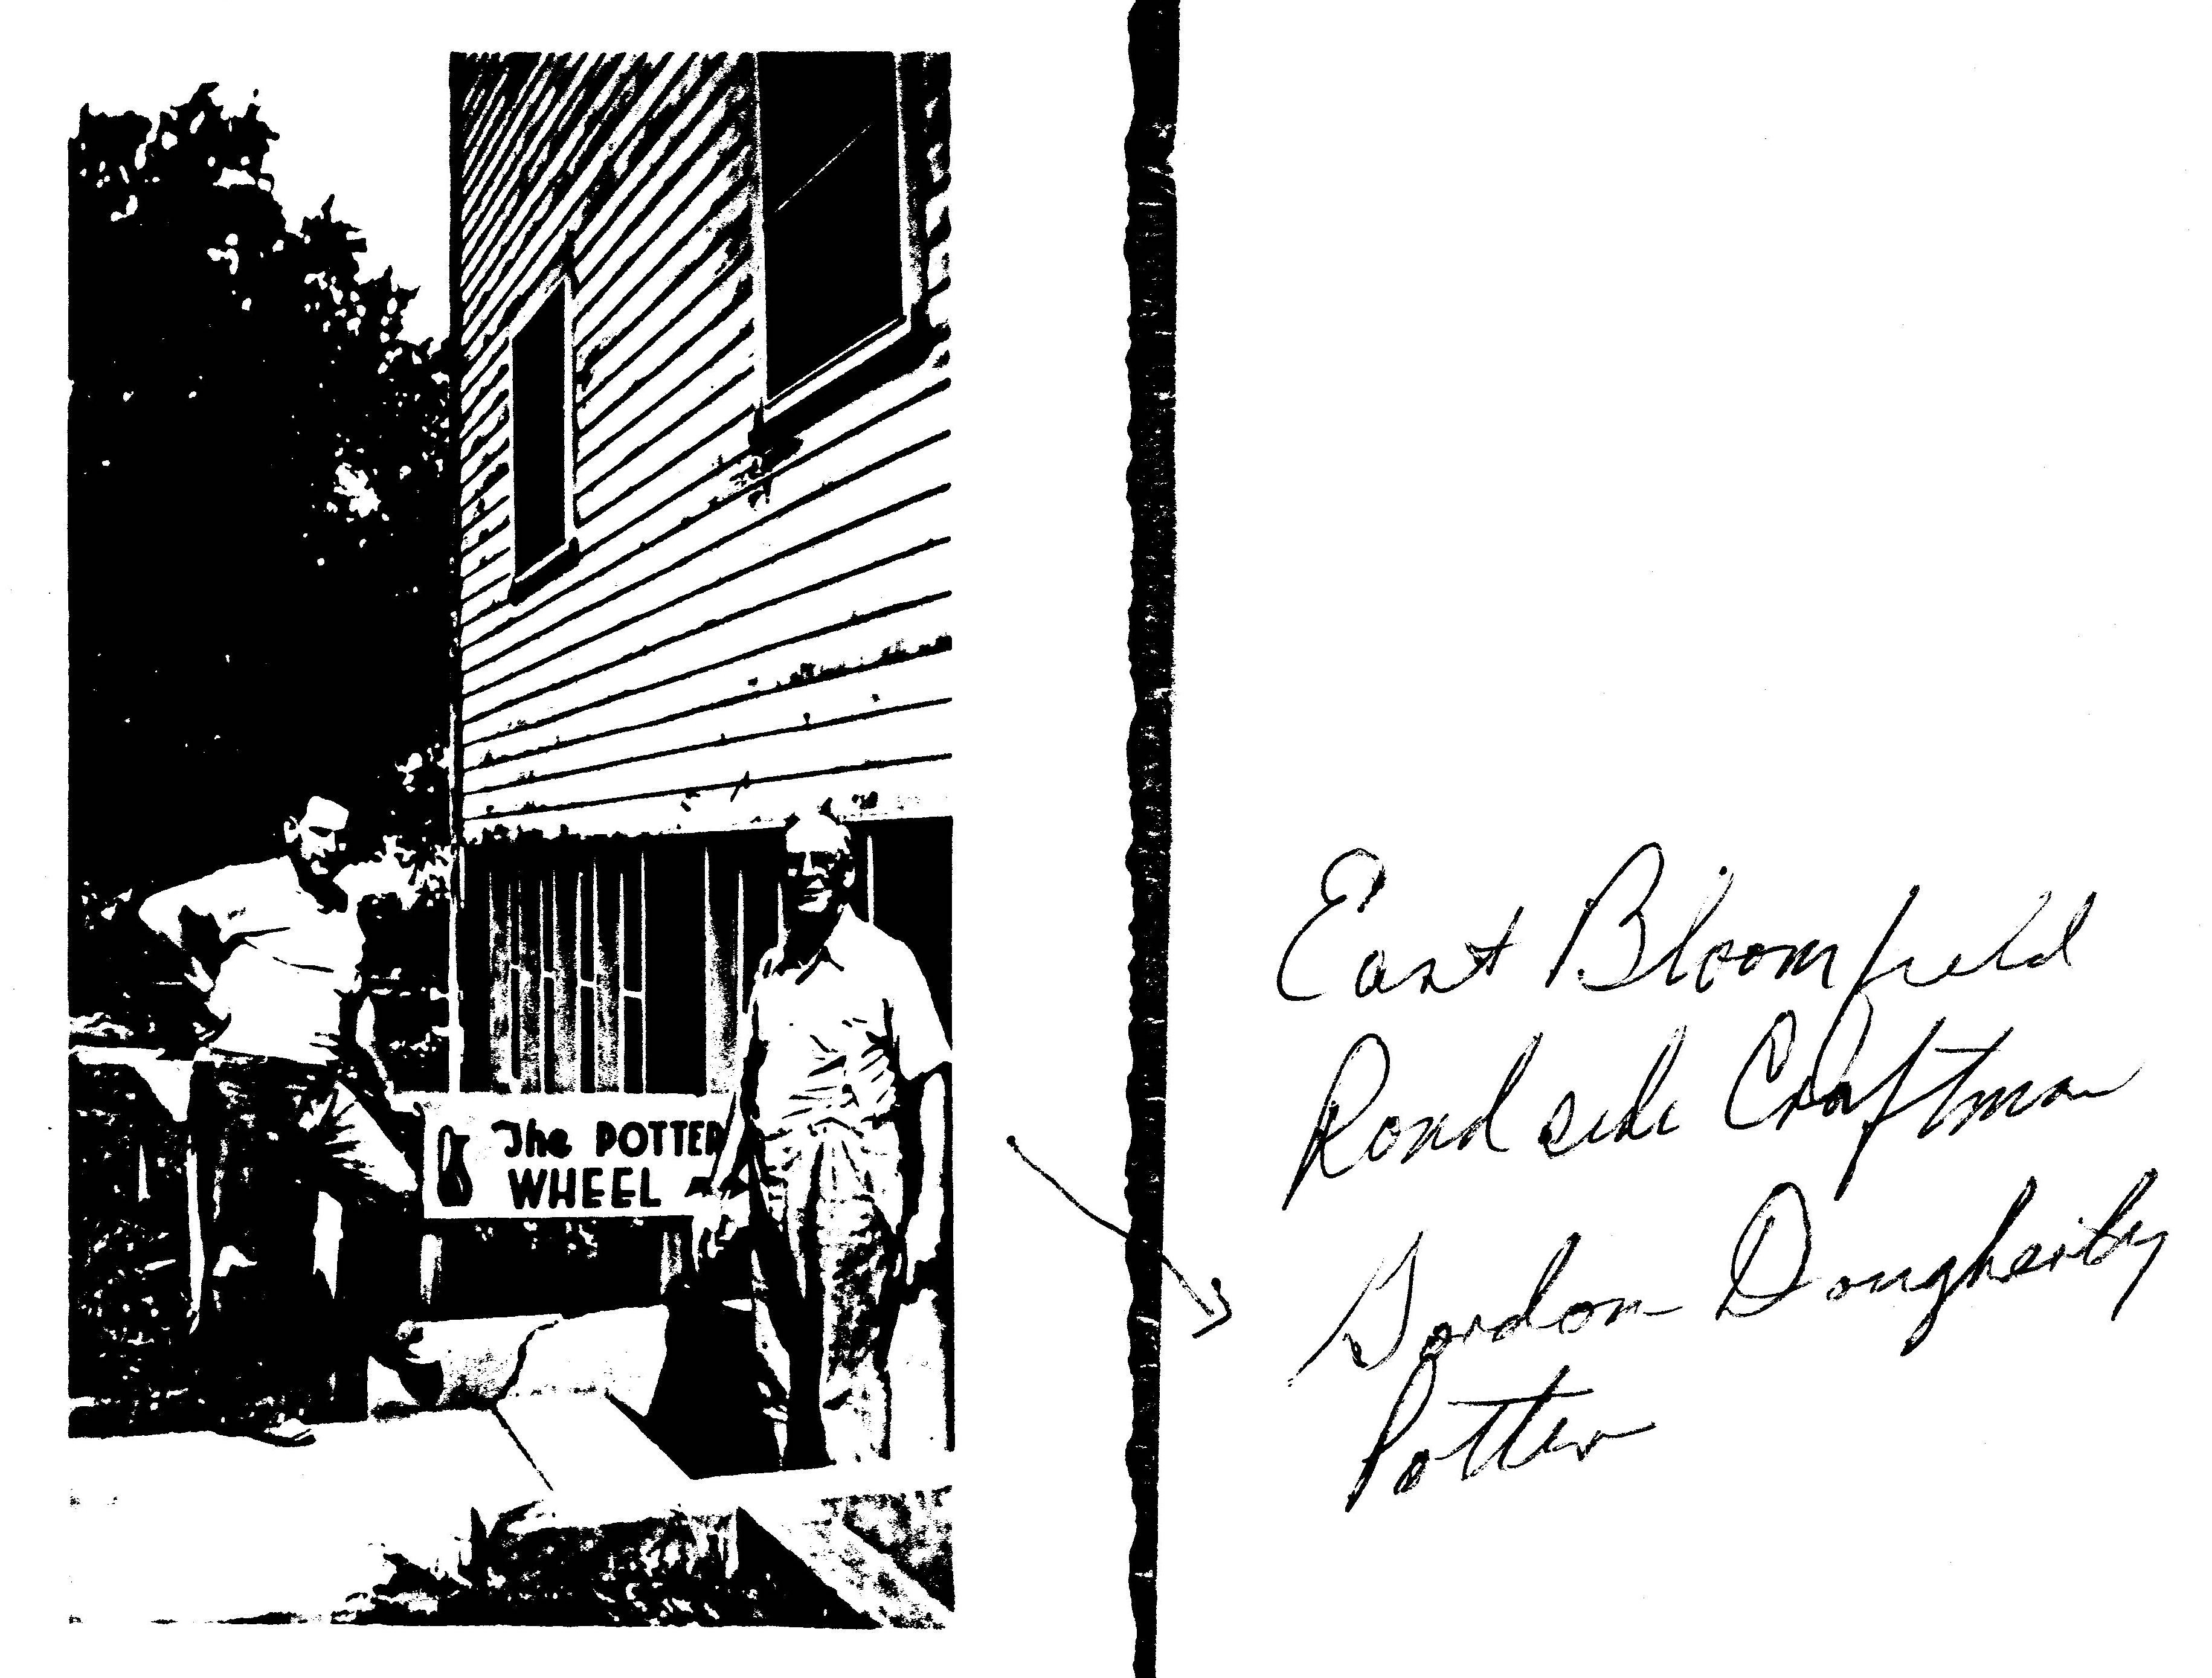 The POTTER
WHEEL
East Bloomfield
Road side Craftman
Gordon Dougherty
Potter